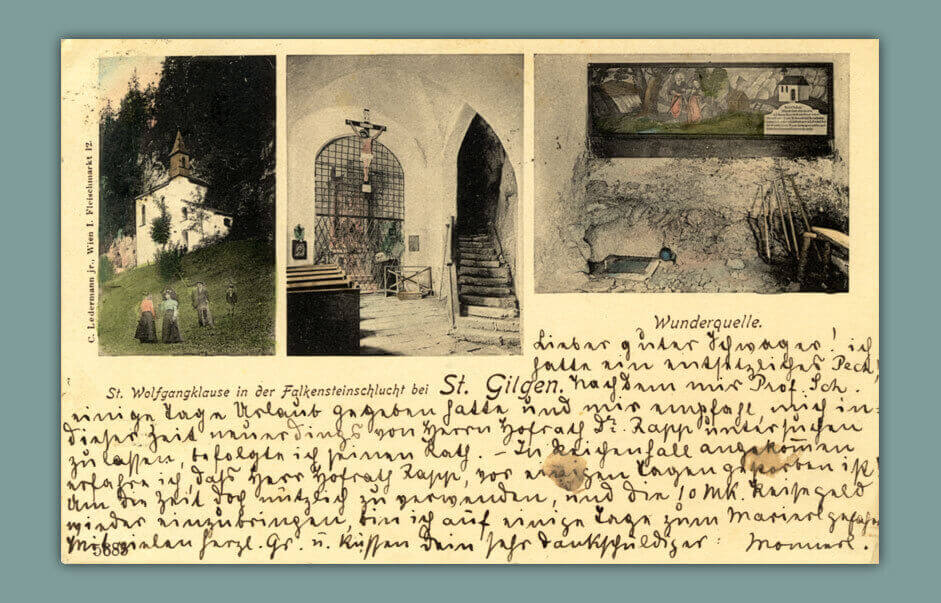 C. Ledermann jr., Wien I. Fleischmarkt 12.
Wunderquelle.
St. Wolfgangklause in der Falkensteinschlucht bei St. Gilgen.
Lieber guter Schwager! ich
hatte ein entsetzliches Pech!
Nachdem mir Prof. Sch.
einige Tage Urlaub gegeben hatte und mir empfahl, mich in
dieser Zeit neuerdings von Herrn Hofrath Dr. Rapp untersuchen
zu lassen, befolgte ich seinen Rath. – In Reichenhall angekommen
erfahre ich, daß Herr Hofrath Rapp, vor einigen Tagen gestorben ist!
Um die Zeit doch nützlich zu verwenden, und die 10 Mk. Reisegeld
wieder einzubringen, bin ich auf einige Tage zum gefahren
Mit vielen herzl. Gr. u. Küssen Dein sehr dankschuldiger:
5885